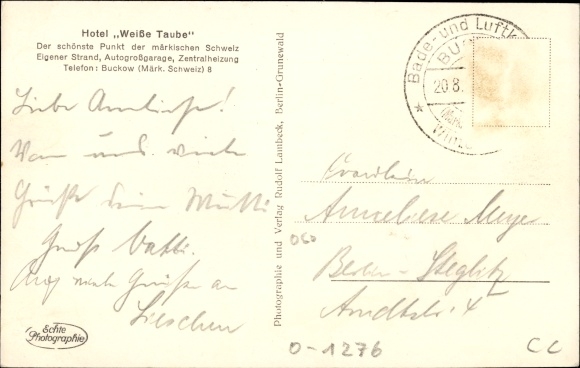 Hotel „Weiße Taube"
Der schönste Punkt der märkischen Schweiz
Eigener Strand, Autogroßgarage, Zentralheizung
Telefon: Buckow (Märk. Schweiz) 8
Liebe Anneliese!
Von uns viele
Grüße Deine Mutti
Gruß Vatti.
Auch viele Grüße an
Lieschen
Echte
Photographie
Photographie und Verlag Rudolf Lambeck, Berlin-Grunewald
Bade- und Luftk
BU
20.8.
(Märk.
Fräulein
Anneliese Meyer
Berlin-Steglitz
Arndtstr. 4
060
0-1276
CC